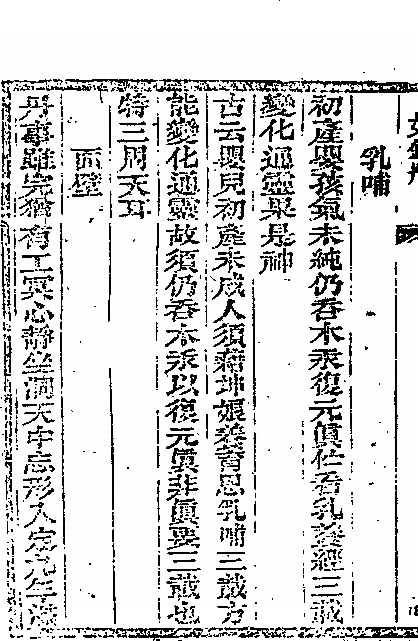 女金丹
乳哺
初產嬰孩氣未純仍吞木汞復元真伫看乳養經三載
變化通靈果是神
古云嬰兒初產未成人須藉坤娘養育恩乳哺三載方
能變化通靈故須仍吞木汞以復元真非真要三載也
特三周天耳
面壁
丹事雖完猶有工冥心靜坐洞天中忘形入定九年滿